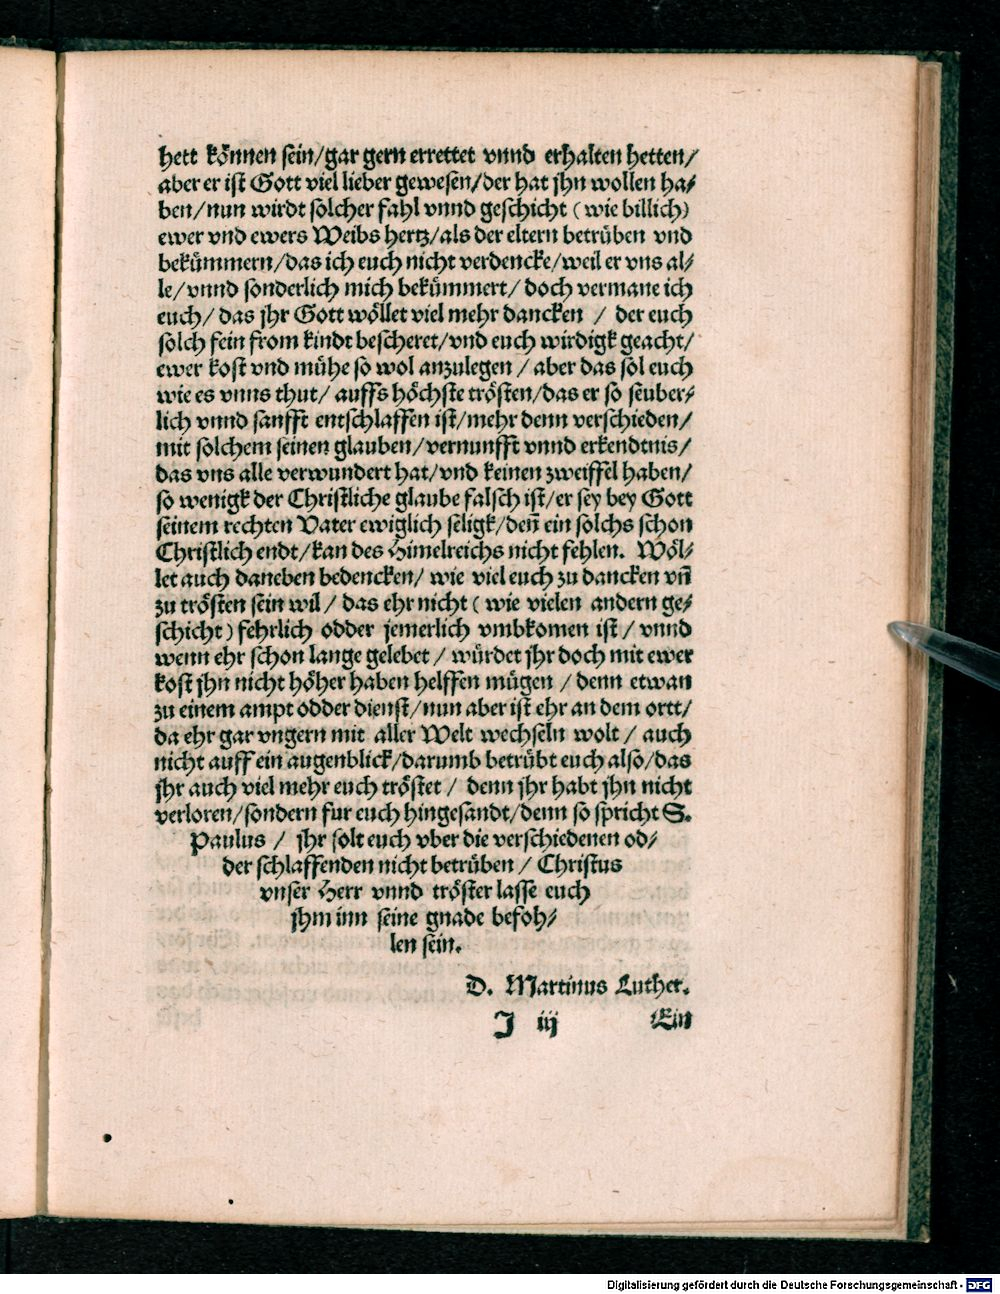 hett können sein/gar gern errettet vnnd erhalten hetten/
aber er ist Gott viel lieber gewesen/der hat jhn wollen ha⸗
ben/nun wirdt solcher fahl vnnd geschicht ( wie billich)
ewer vnd ewers Weibs hertz/als der eltern betrüben vnd
bekümmern/das ich euch nicht verdencke/weil er vns al⸗
le/vnnd sonderlich mich bekümmert/ doch vermane ich
euch/ das jhr Gott wöllet viel mehr dancken / der euch
solch fein from kindt bescheret/vnd euch wirdigk geacht/
ewer kost vnd mühe so wol anzulegen / aber das sol euch
wie es vnns thut/ auffs höchste trösten/das er so seuber⸗
lich vnnd sanfft entschlaffen ist/mehr denn verschieden/
mit solchem seinen glauben/vernunfft vnnd erkendtnis/
das vns alle verwundert hat/vnd keinen zweiffel haben/
so wenigk der Christliche glaube falsch ist/er sey bey Gott
seinem rechten Vater ewiglich seligk/deñ ein solchs schon
Christlich endt/kan des Himelreichs nicht fehlen. Wöl⸗
let auch daneben bedencken/ wie viel euch zu dancken vñ
zu trösten sein wil / das ehr nicht ( wie vielen andern ge⸗
schicht) fehrlich odder jemerlich vmbkomen ist / vnnd
wenn ehr schon lange gelebet / würdet jhr doch mit ewer
kost jhn nicht höher haben helffen mügen / denn etwan
zu einem ampt odder dienst/nun aber ist ehr an dem ortt/
da ehr gar vngern mit aller Welt wechseln wolt / auch
nicht auff ein augenblick/darumb betrübt euch also/das
jhr auch viel mehr euch tröstet / denn jhr habt jhn nicht
verloren/sondern fur euch hingesandt/denn so spricht S.
Paulus / jhr solt euch vber die verschiedenen od⸗
der schlaffenden nicht betrüben / Christus
vnser Herr vnnd tröster lasse euch
jhm inn seine gnade befoh⸗
len sein.
D. Martinus Luther.
J iij Ein
Digitalisierung gefördert durch die Deutsche Forschungsgemeinschaft - DFG